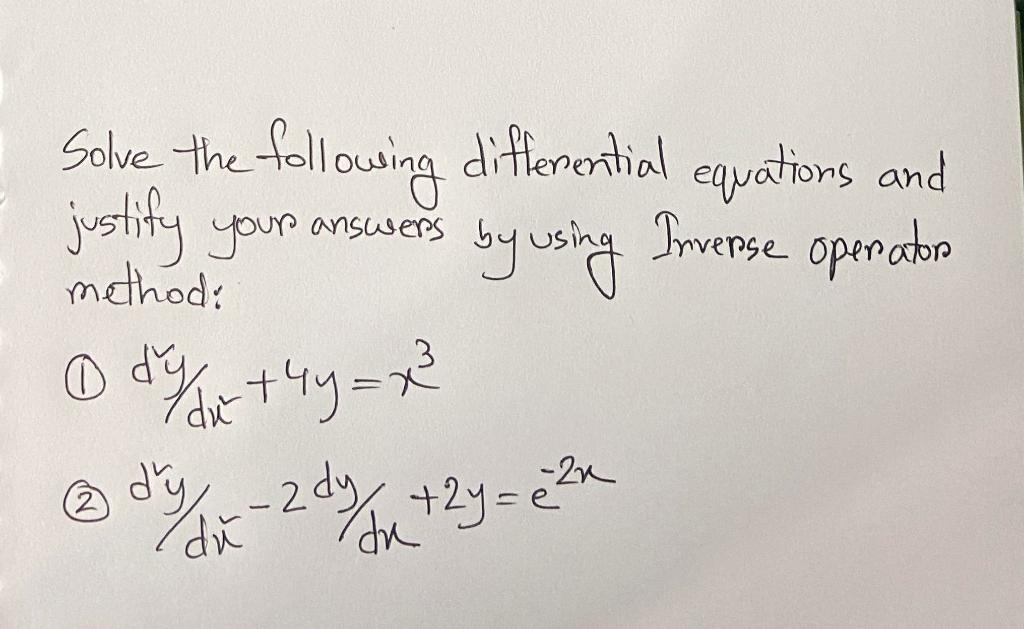 Solve the following differential equations and
justify your answers by using Inverse operator
method:
① d²y/dx² + 4y = x³
② d²y/dx² - 2 dy/dx + 2y = e⁻²ˣ